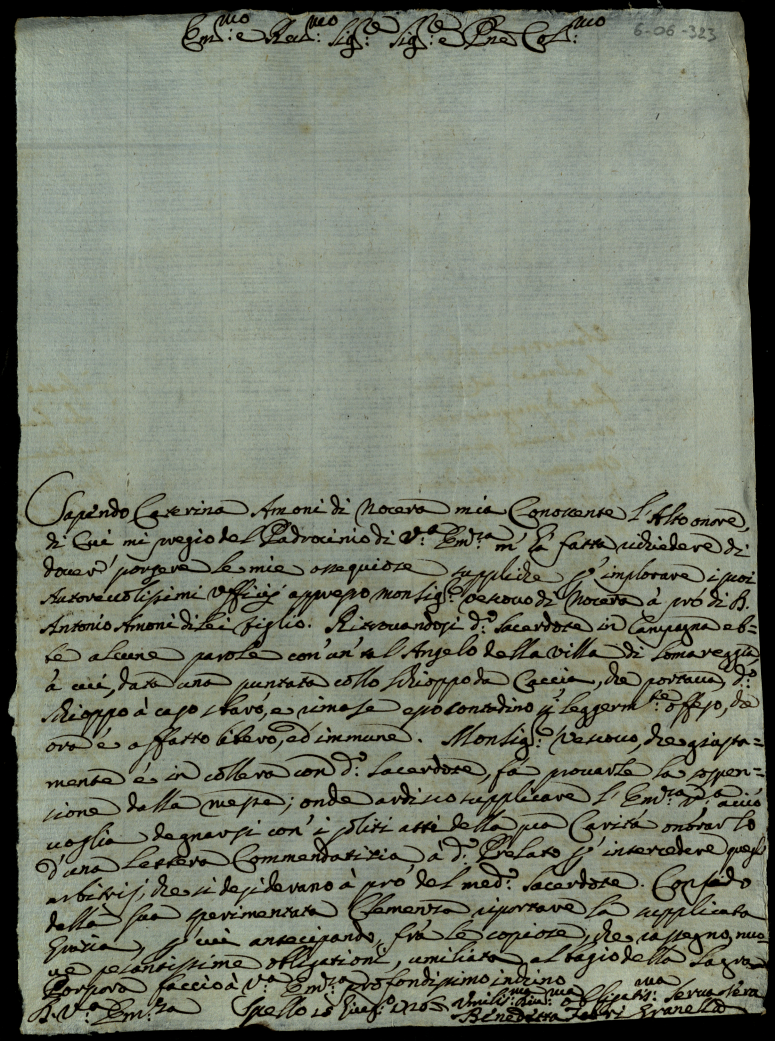 6-06-323
Em.mo e Rev.mo Sig.re Sig.re e Pne Col.mo
Sapendo Caterina Amoni di Nocera mia Conoscente l'Alto onore,
di Cui mi pregio del Padrocinio di V.a Em.za m'hà fatto richiedere di
dover porgere le mie ossequiose suppliche p' implorare i suoi
Autorevolissimi Ufficij appresso Monsig.r Vescovo di Nocera à prò di B.
Antonio Amoni di lei figlio. Ritrovandosi d.o Sacerdote in Campagna eb-
te alcune parole con un tal Angelo della villa di Lomareggia,
à cui, data una puntata collo schioppo da Caccia, che portava, d.o
schioppo à caso sbarò, e rimase esso contadino leggerm.te offeso, che
ora è affatto libero, ed immune. Monsig.r Vescovo, che giusta-
mente è in collera con d.o Sacerdote, fà provarle la sospen-
sione dalla messa; onde ardisco supplicare l'Em.za V.a acciò
voglia degnarsi con i soliti atti della sua Carità onorarlo
d'una Lettera Commendatizia à d.o Prelato p' intercedere quegl'
arbitrij, che si desiderano à prò del med.o Sacerdote. Confido
dalla sua sperimentata Clemenza riportare la supplicata
Grazia, p' cui anticipando, frà le copiose, che rassegno, nuo-
ve pesantissime obligationi, umiliata al bagio della Sagra
Porpora faccio à V.a Em.za profondissimo inchino
D. V.a Em.za Spello 10 Giug.o 1726 Umiliss.ma Div.ma Obligatis.ma Serva vera
Benedetta Granelli